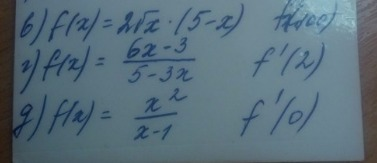 в) f(x) = 2√x · (5-x)
г) f(x) = (6x-3)/(5-3x) f'(2)
д) f(x) = x²/(x-1) f'(0)